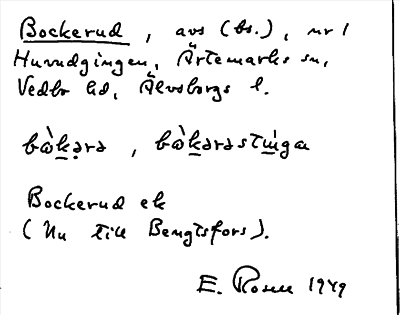 Bockerud, avs (bs.), nr 1
Huvudgingen, Ärtemarks sn,
Vedbo hd, Älvsborgs l.
bò̀kərə, bò̀kərəstùi̯gɑ
Bockerud ek
(Nu till Bengtsfors).
E. Rosell 1949